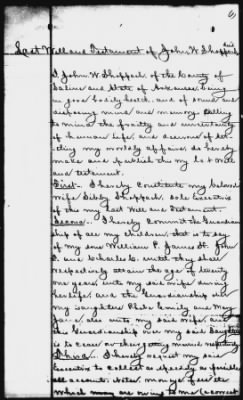 Last Will and Testament of John W. Sheppard
I John W. Sheppard of the County of
Saline and State of Arkansas being
in good bodily health and of sound and
disposing mind and memory calling
to mind the frailty and uncertainty
of human life, and desirous of set
tling my worldly affairs do hereby
make and publish this my last will
and testament.
First - I hereby constitute my beloved
wife Sibby Sheppard, sole executrix
of this my last Will and Testament
Second - I hereby commit the Guardian
ship of all my children, that is to say
of my sons William P. James H. John
and Charles C. until they shall
respectively attain the age of twenty
one years, unto my said wife during
her life, and the Guardianship over
my daughters and Mary
Jane also unto my said wife. And
this Guardianship over my said Daughters
is to cease on their getting married
Third - I hereby my said
Executrix to collect as speedily as possible
all accounts, notes, money &c
which may are owing to me